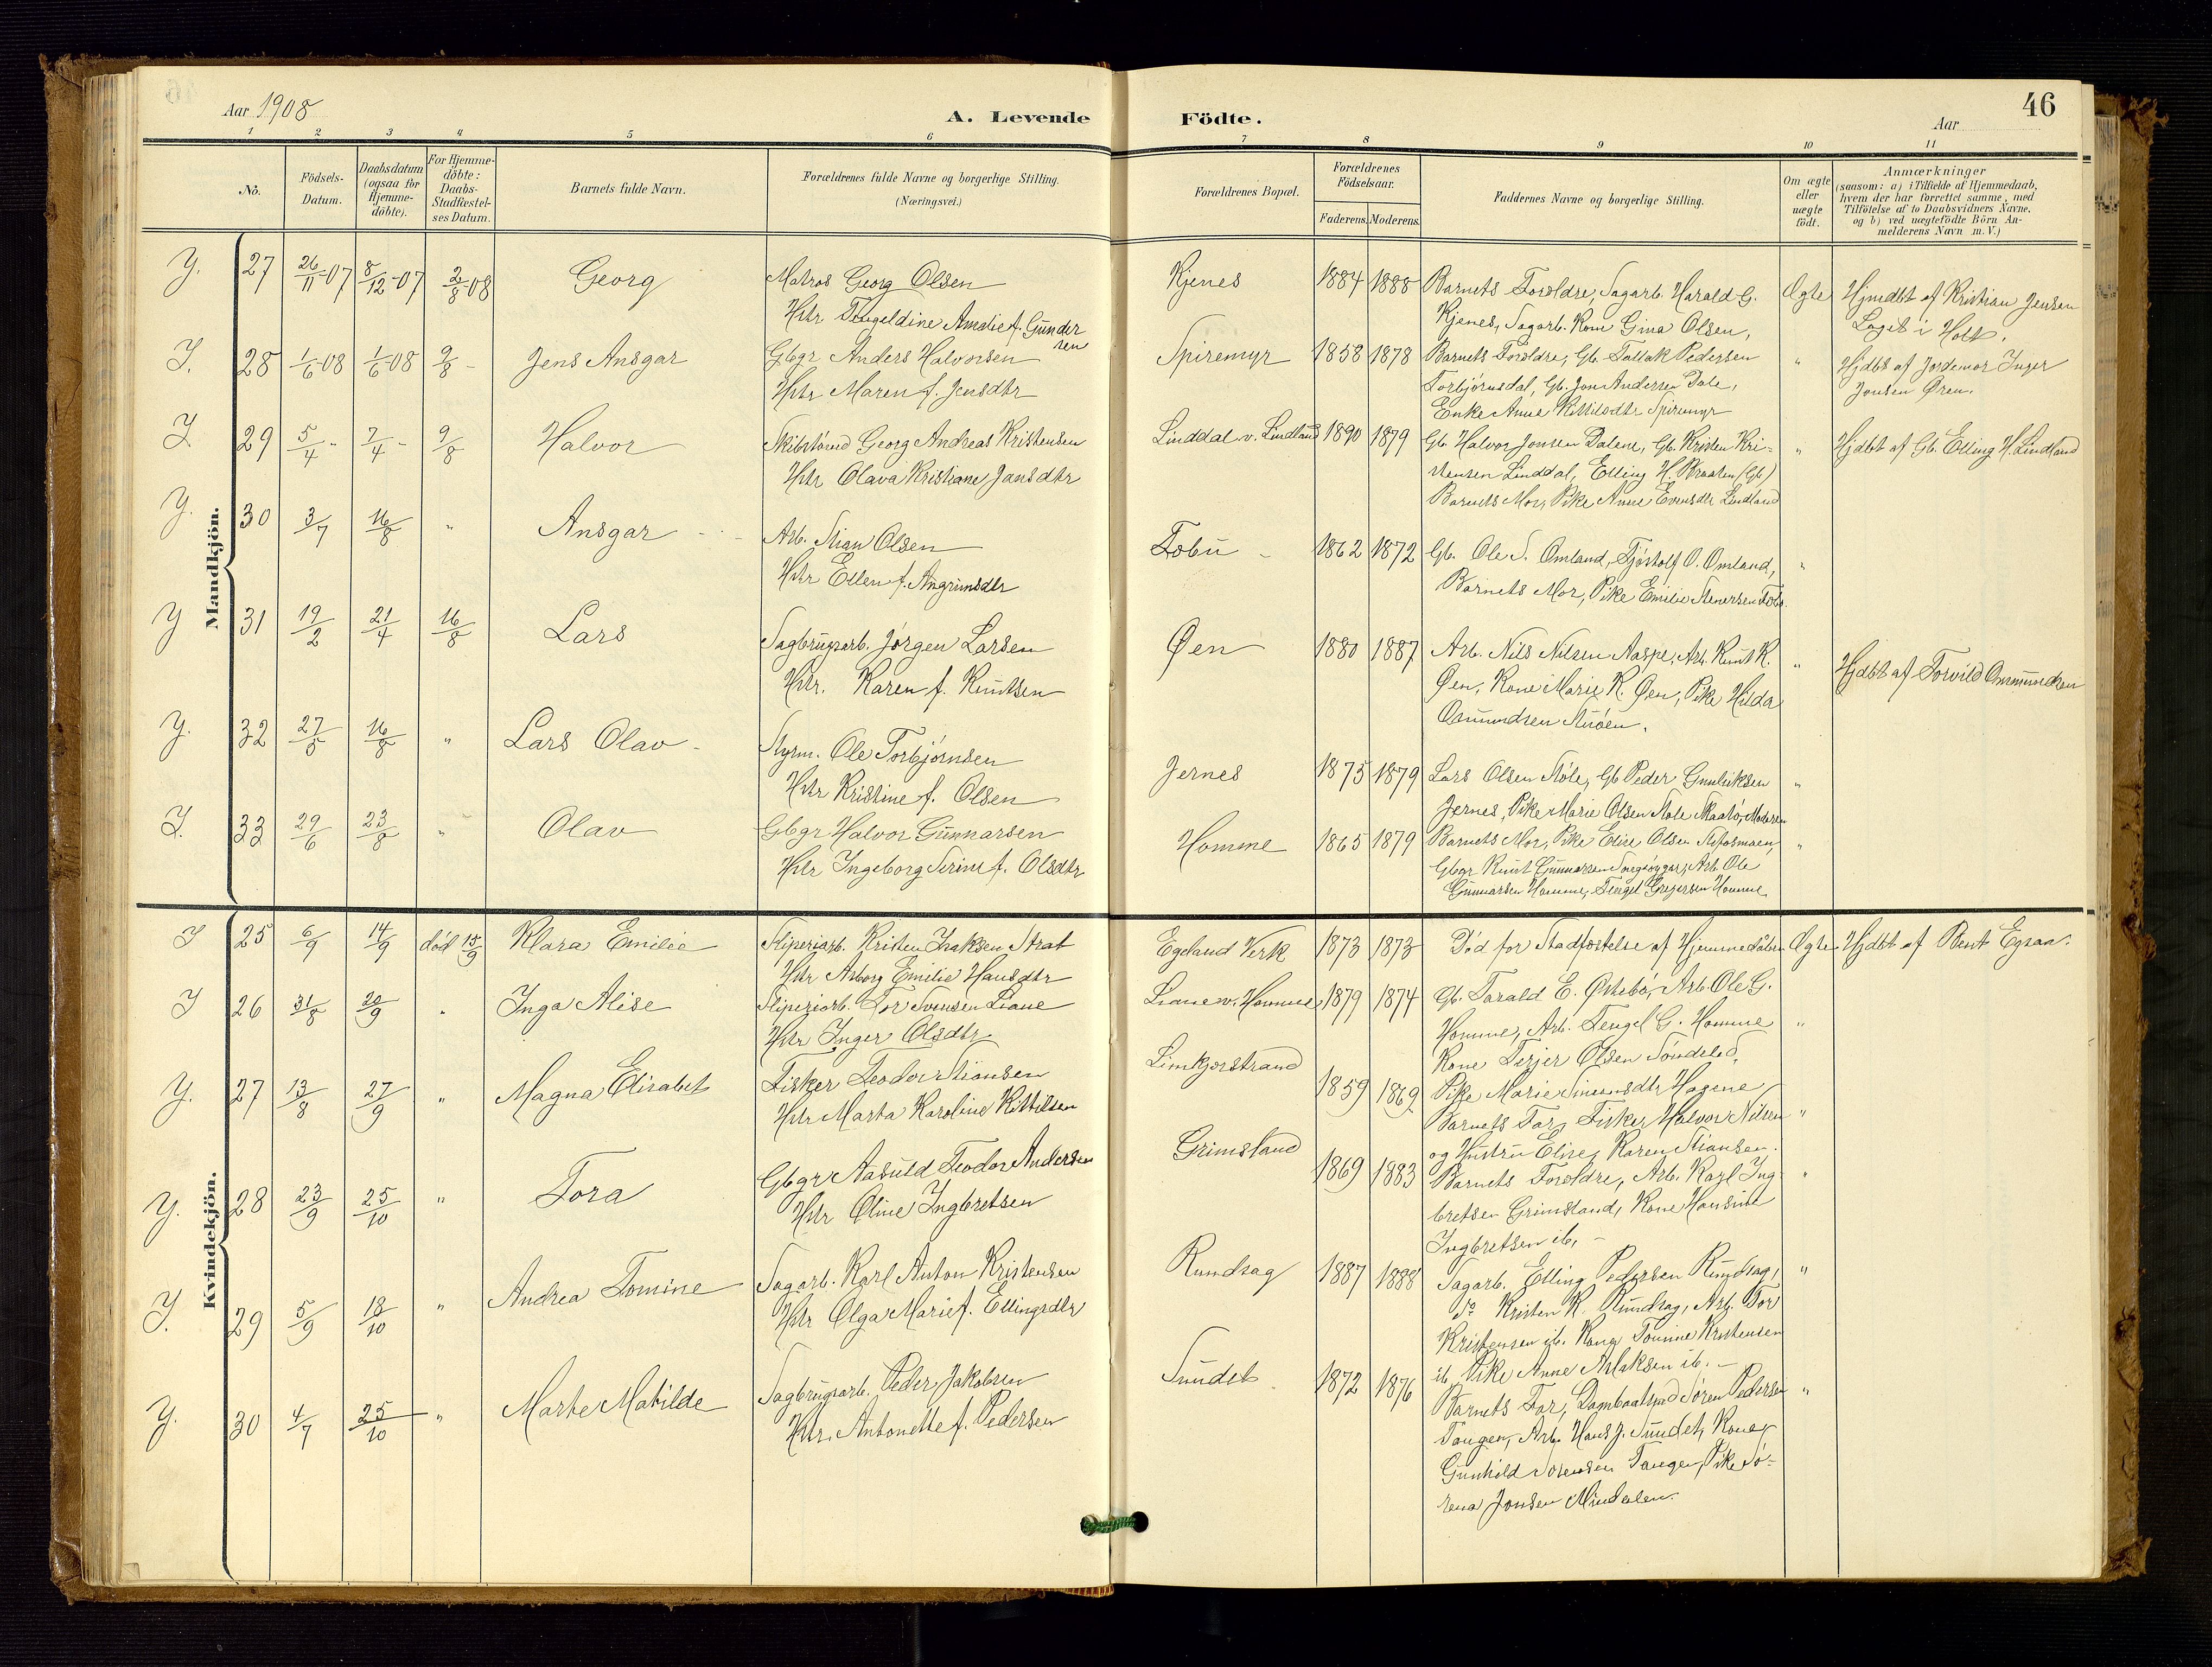 Aar 1908
A. Levende
Födte.
Aar
46
1 2 3 4 5 6 7 8 9 10 11
No.
Födsels-
Datum.
Daabsdatum
(ogsaa for
Hjemme-
döbte).
For Hjemme-
döbte:
Daabs-
Stadfæstel-
ses Datum.
Barnets fulde Navn.
Forældrenes fulde Navne og borgerlige Stilling.
(Næringsvei.)
Forældrenes Bopæl.
Forældrenes
Födselsaar.
Faderens. Moderens.
Faddernes Navne og borgerlige Stilling.
Om ægte
eller
uægte
födt.
Anmærkninger
(saasom: a) i Tilfælde af Hjemmedaab,
hvem der har forrettet samme, med
Tilföielse af to Daabsvidners Navne,
og b) ved uægtefödte Börn An-
melderens Navn m. V.)
Mandkjön.
Y. 27 26/11-07 8/12-07 2/8-08 Georg
Matros Georg Olsen
Hstr Tengeldine Amalie f. Gunder
sen
Kjenes 1884 1888
Barnets Forældre, Sagarb. Harald G.
Kjenes, Sagarb. Kone Gina Olsen,
Ægte
Hjmdbt af Kristian Jensen
Laget i Holt.
I. 28 1/6-08 1/6-08 9/8 - Jens Ansgar
Gbgr Anders Halvorsen
Hstr Maren f. Jensdtr
Spiremyr 1858 1878
Barnets Forældre, Gb. Tallak Pedersen
Torbjørnsdal, Gb. Jon Andersen Dale,
Enke Anne Kittilsdtr Spiremyr
"
Hjdbt af Jordemor Inger
Jensen Øren.
I. 29 5/4 - 7/4 - 9/8 Halvor
Skibstømd Georg Andreas Kristensen
Hstr Olava Kristiane Jansdtr
Linddal v. Lindland 1890 1879
Gb. Halvor Jonsen Dalene, Gb. Kristen Kri-
stensen Linddal, Elling H. Braaten (Gb)
Barnets Mor, Pike Anne Evensdtr Lindland
"
Hjdbt af Gb. Elling H. Lindland
Y. 30 3/7 16/8 " Ansgar
Arb. Stian Olsen
Hstr Ellen f. Angrimsdtr
Febu - 1862 1872
Gb. Ole S. Omland, Tjøstolf O. Omland,
Barnets Mor, Pike Emilie Stenersen
"
Y 31 19/2 21/4 16/8 Lars
Sagbrugsarb. Jørgen Larsen
Hstr. Karen f. Knutsen
Øen 1880 1887
Arb. Nils Nilsen Aaspe, Arb. Knut K.
Øen, Kone Marie K. Øen, Pike Hilda
Osmundsen
"
Hjdbt af Torvild
Y. 32 27/5 16/8 " Lars Olav -
Styrm. Ole Torbjørnsen
Hstr Kristine f. Olsen
Jernes 1875 1879
Lars Olsen Støle, Gb Peder Gunleiksen
Jernes, Pike Marie Olsen Støle Skaatø, Moderen
"
I. 33 29/6 23/8 " Olav
Gbgr Halvor Gunnarsen
Hstr Ingeborg Serine f. Olsdtr
Homme 1865 1879
Barnets Mor, Pike Elise Olsen
Gbgr Knut Gunnarsen Arb. Ole
Gunnarsen Homme, Tengel Gregersen Homme
"
Kvindekjön.
I 25 6/9 14/9 död 15/9 Klara Emilie
Sliperiarb. Kristen Isaksen Strat
Hstr Asborg Emilie Hansdtr
Egeland Verk 1873 1873
Død for Stadfæstelse af Hjemmedaaben
Ægte
Hjdbt af Bent Egraa.
I 26 31/8 20/9 " Inga Alise
Sliperiarb. Tor Svensen Liane
Hstr Inger Olsdtr
Liane v. Homme 1879 1874
Gb. Tarald E. Østebø, Arb. Ole G.
Homme, Arb. Tengel G. Homme
Kone Terjer Olsen Søndeled,
"
Y. 27 13/8 27/9 " Magna Elisabet
Fisker Teodor Stiansen
Hstr Marta Karoline Kittilsen
Limkjærstrand 1859 1869
Pike Marie Simonsdtr Hagene,
Barnets Far, Fisker Halvor Nilsen
og Hustru Elise, Karen Stiansen.
"
Y. 28 23/9 25/10 " Tora
Gbgr Aasuld Teodor Andersen
Hstr Oline Ingbretsen
Grimsland 1869 1883
Barnets Forældre, Arb. Karl Ing-
bretsen Grimsland, Kone Hansine
Ingbretsen ib. -
"
I. 29 5/9 18/10 " Andrea Tomine
Sagarb. Karl Anton Kristensen
Hstr Olga Marie f. Ellingsdtr
Rundsag 1887 1888
Sagarb. Elling Pedersen Rundsag,
Do Kristen K. Rundsag, Arb. Tor
Kristensen ib. Kone Tomine Kristensen
ib. Pike Anne Aslaksen ib. -
"
Y. 30 4/7 25/10 " Marte Matilde
Sagbrugsarb. Peder Jakobsen
Hstr. Antonette f. Pedersen
Sundet 1872 1876
Barnets Far, Søren Pedersen
Tangen, Arb. Hans J. Sundet, Kone
Gunhild Sørensen Tangen, Pike Sø-
rena Jonsen Mindalen.
"